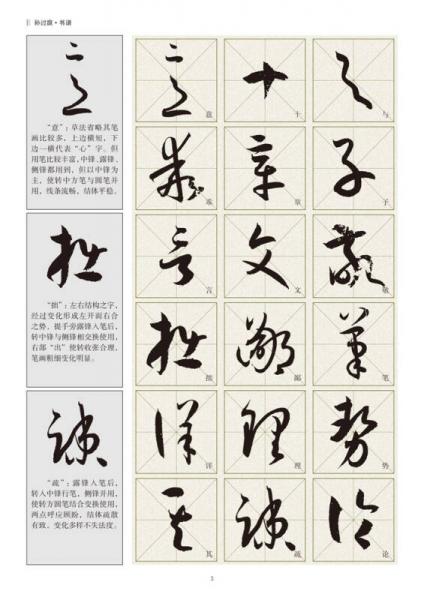 孙过庭·书谱
意
“意”：草法省略其笔
画比较多，上边横短，下
边一横代表“心”字。但
用笔比较丰富，中锋、露锋、
侧锋都用到，但以中锋为
主，使转中方笔与圆笔并
用，线条流畅，结体平稳。
拙
“拙”：左右结构之字，
经过变化形成左开而右合
之势，提手旁露锋入笔后，
转中锋与侧锋相交换使用，
右部“出”使转收张合理，
笔画粗细变化明显。
疏
“疏”：露锋入笔后，
转入中锋行笔，侧锋并用，
使转方圆笔结合变换使用，
两点呼应顾盼，结体疏散
有致，变化多样不失法度。
与子敬笔势论
十章文鄙理疏
意乖言拙详其
3